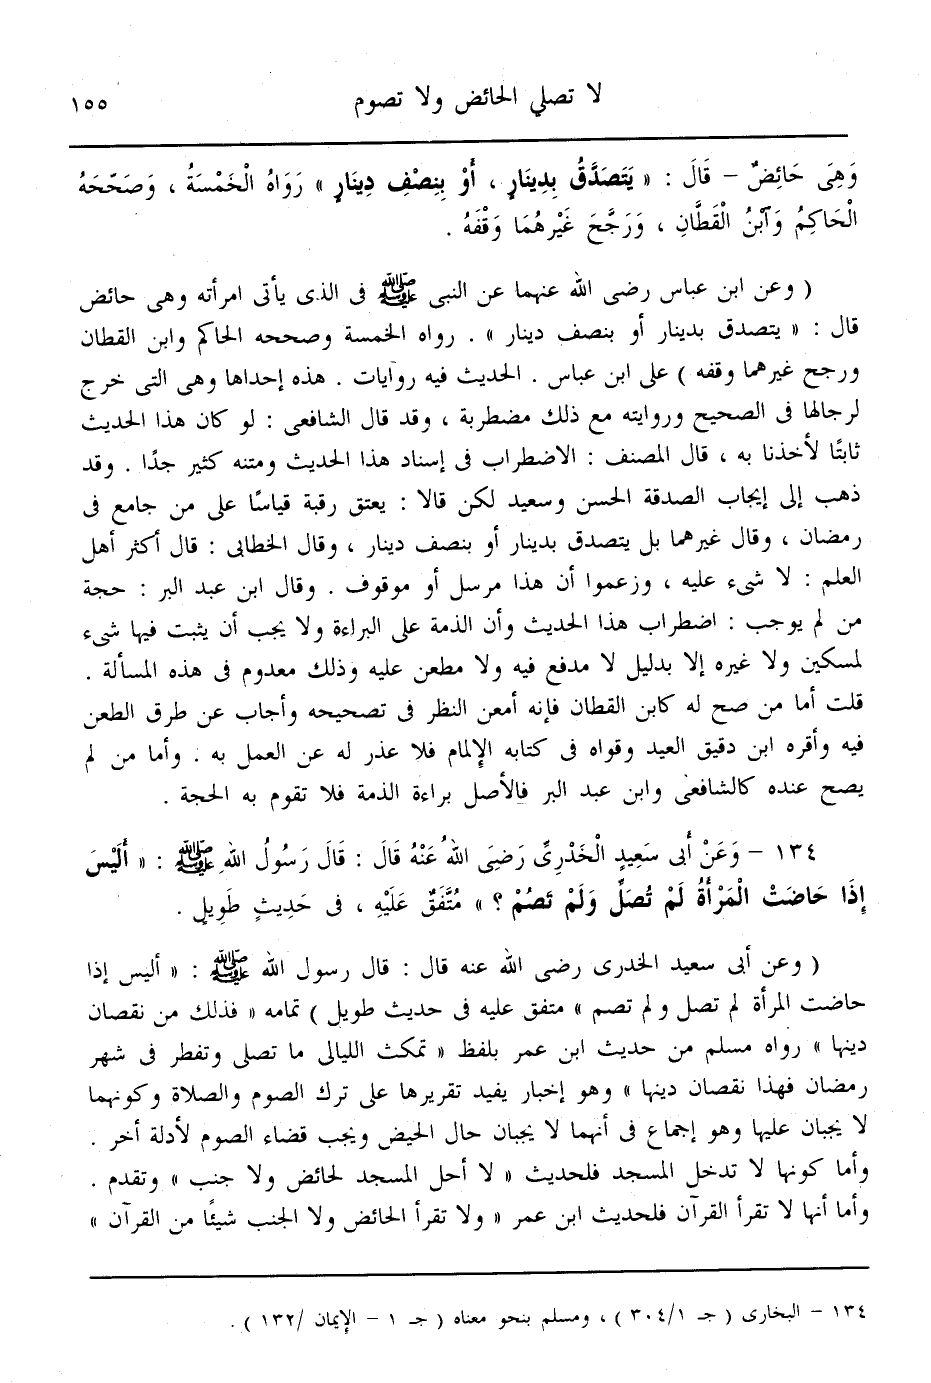 لا تصلي الحائض ولا تصوم ١٥٥
وَهِىَ حَائِضٌ – قَالَ : « يَتَصَدَّقُ بِدِينَارٍ ، أَوْ بِنِصْفِ دِينَارٍ » رَوَاهُ الْخَمْسَةُ ، وَصَحَّحَهُ
الْحَاكِمُ وَآبْنُ الْقَطَّانِ ، وَرَجَّحَ غَيْرهُمَا وَقْفَهُ .
( وعن ابن عباس رضى الله عنهما عن النبى ﷺ فى الذى يأتى امرأته وهى حائض
قال : « يتصدق بدينار أو بنصف دينار » . رواه الخمسة وصححه الحاكم وابن القطان
ورجح غيرهما وقفه ) على ابن عباس . الحديث فيه روايات . هذه إحداها وهى التى خرج
لرجالها فى الصحيح وروايته مع ذلك مضطربة ، وقد قال الشافعى : لو كان هذا الحديث
ثابتًا لأخذنا به ، قال المصنف : الاضطراب فى إسناد هذا الحديث ومتنه كثير جدًا . وقد
ذهب إلى إيجاب الصدقة الحسن وسعيد لكن قالا : يعتق رقبة قياسًا على من جامع فى
رمضان ، وقال غيرهما بل يتصدق بدينار أو بنصف دينار ، وقال الخطابى : قال أكثر أهل
العلم : لا شىء عليه ، وزعموا أن هذا مرسل أو موقوف . وقال ابن عبد البر : حجة
من لم يوجب : اضطراب هذا الحديث وأن الذمة على البراءة ولا يجب أن يثبت فيها شىء
لمسكين ولا غيره إلا بدليل لا مدفع فيه ولا مطعن عليه وذلك معدوم فى هذه المسألة .
قلت أما من صح له كابن القطان فإنه أمعن النظر فى تصحيحه وأجاب عن طرق الطعن
فيه وأقره ابن دقيق العيد وقواه فى كتابه الإلمام فلا عذر له عن العمل به . وأما من لم
يصح عنده كالشافعى وابن عبد البر فالأصل براءة الذمة فلا تقوم به الحجة .
١٣٤ – وَعَنْ أبى سَعِيدٍ الْخَدْرِىِّ رَضِىَ اللهُ عَنْهُ قَالَ : قَالَ رَسُولُ اللهِ ﷺ : « أَلَيْسَ
إِذَا حَاضَتْ الْمَرْأَةُ لَمْ تُصَلِّ وَلَمْ تَصُمْ ؟ » مُتَّفَقٌ عَلَيْهِ ، فى حَدِيثٍ طَوِيلٍ .
( وعن أبى سعيد الخدرى رضى الله عنه قال : قال رسول الله ﷺ : « أليس إذا
حاضت المرأة لم تصل ولم تصم » متفق عليه فى حديث طويل ) تمامه « فذلك من نقصان
دينها » رواه مسلم من حديث ابن عمر بلفظ « تمكث الليالى ما تصلى وتفطر فى شهر
رمضان فهذا نقصان دينها » وهو إخبار يفيد تقريرها على ترك الصوم والصلاة وكونهما
لا يجبان عليها وهو إجماع فى أنهما لا يجبان حال الحيض ويجب قضاء الصوم لأدلة أخر .
وأما كونها لا تدخل المسجد فلحديث « لا أحل المسجد لحائض ولا جنب » وتقدم .
وأما أنها لا تقرأ القرآن فلحديث ابن عمر « ولا تقرأ الحائض ولا الجنب شيئًا من القرآن »
١٣٤ – البخارى ( جـ ٣٠٤/١ ) ، ومسلم بنحو معناه ( جـ ١ – الإيمان /١٣٢ ) .